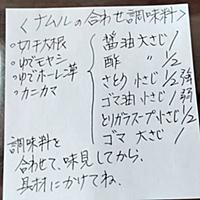 <ナムルの合わせ調味料>
・切干大根
・ゆでモヤシ
・ゆでホーレン草
・カニカマ
醤油 大さじ 1
酢 〃 1/2
さとう 小さじ 1/2強
ゴマ油 小さじ 1/2弱
とりガラスープ 小さじ 1/2
ゴマ 大さじ 1
調味料を
合わせて、味見してから、
具材にかけてね。